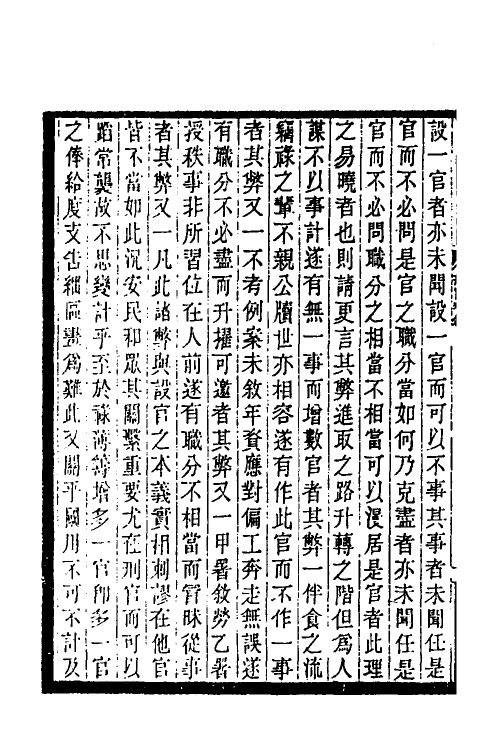 設一官者亦未聞設一官而可以不事其事者未聞任是
官而不必問是官之職分當如何乃克盡者亦未聞任是
官而不必問職分之相當不相當可以漫居是官者此理
之易曉者也則請更言其弊進取之路升轉之階但為人
謀不以事計遂有無一事而增數官者其弊一伴食之流
竊祿之輩不親公牘世亦相容遂有作此官而不作一事
者其弊又一不考例案未敘年資應對偏工奔走無誤遂
有職分不必盡而升擢可邀者其弊又一甲署敘勞乙署
授秩事非所習位在人前遂有職分不相當而冒昧從事
者其弊又一凡此諸弊與設官之本義實相刺謬在他官
皆不當如此況安民和眾其關繫重要尤在刑官而可以
蹈常襲故不思變計乎至於祿薄籌增多一官卽多一官
之俸給度支告絀區畫為難此又關乎國用不可不計及